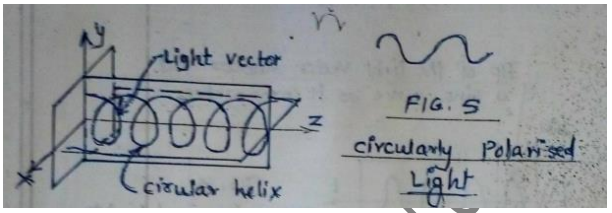 y
Light vector
z
x
cirular helix
FIG. 5
circularly Polarised
Light